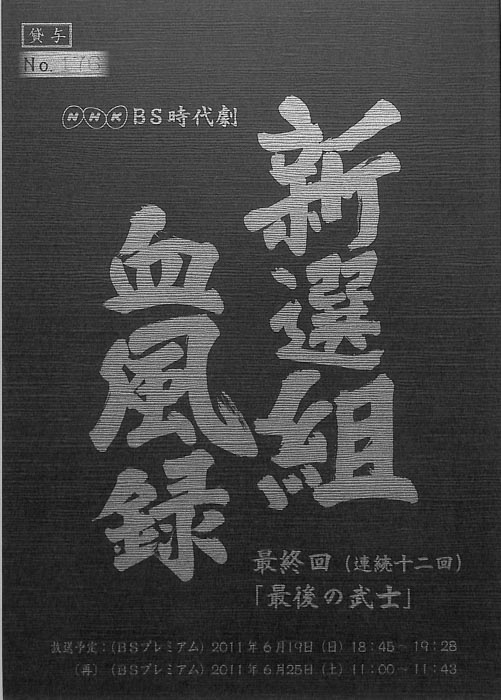 貸与
No.
NHK BS時代劇
新選組
血風録
最終回(連続十二回)
「最後の武士」
放送予定:(BSプレミアム) 2011年6月19日(日) 18:45~19:28
(再) (BSプレミアム) 2011年6月25日(土) 11:00~11:43